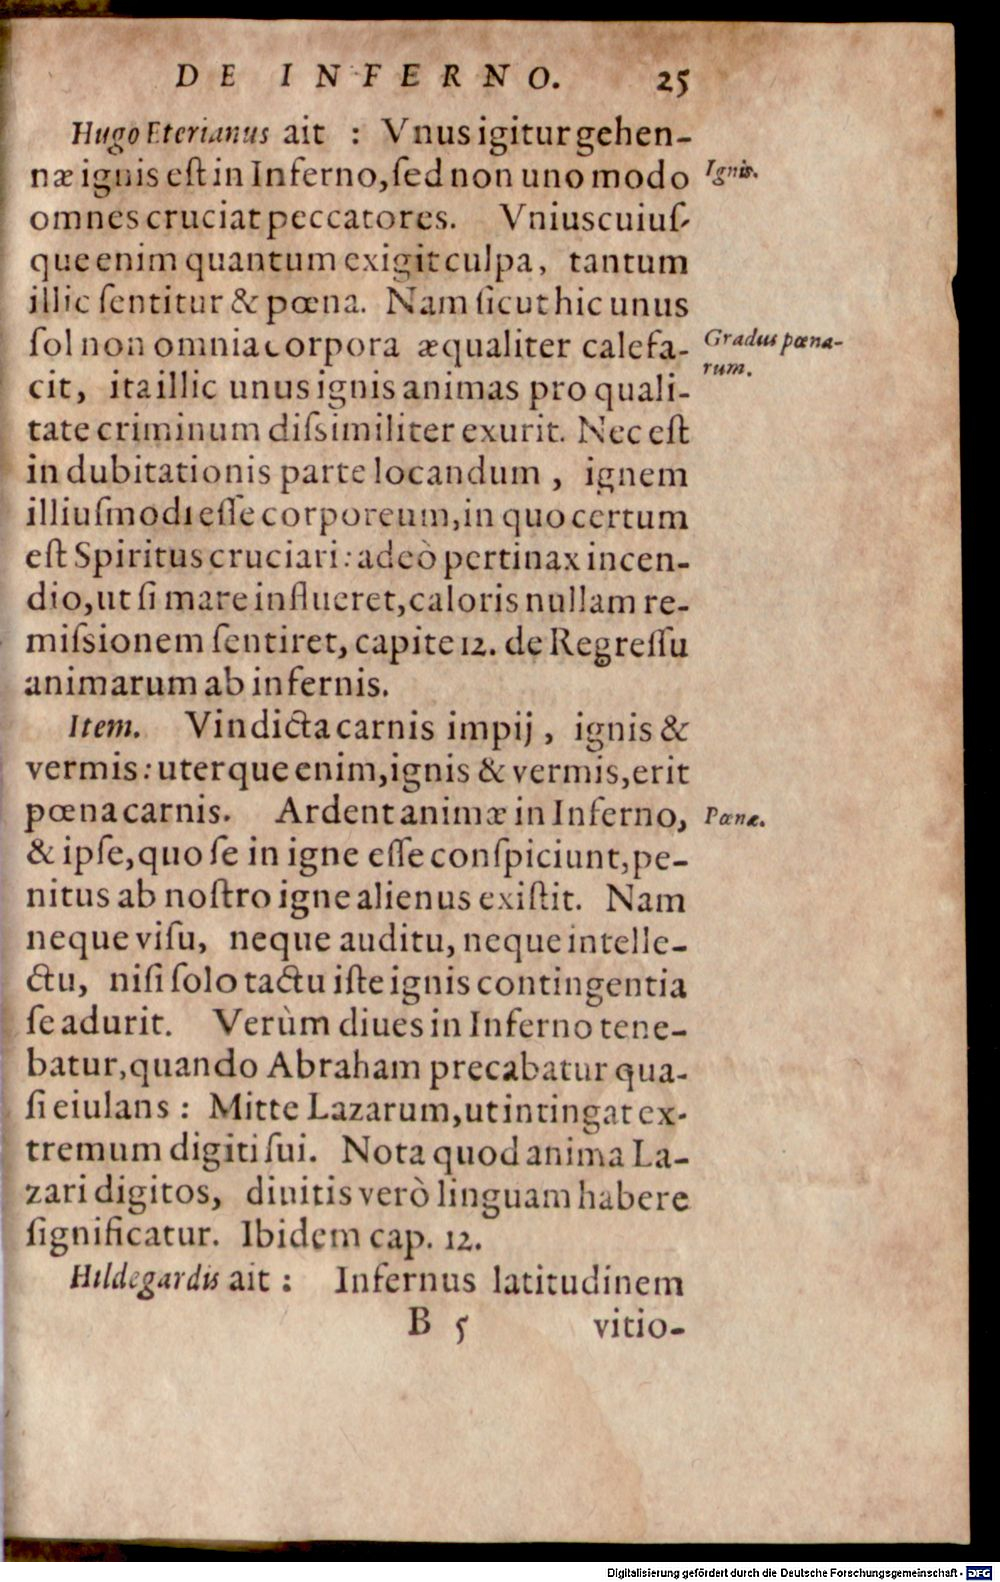 DE INFERNO. 25
Hugo Eterianus ait : Vnus igitur gehen-
næ ignis eſt in Inferno, ſed non uno modo
Ignis.
omnes cruciat peccatores. Vniuscuiuſ-
que enim quantum exigit culpa, tantum
illic ſentitur & pœna. Nam ſicut hic unus
ſol non omnia corpora æqualiter calefa-
Gradus pœna-
rum.
cit, ita illic unus ignis animas pro quali-
tate criminum diſsimiliter exurit. Nec eſt
in dubitationis parte locandum, ignem
illiuſmodi eſſe corporeum, in quo certum
eſt Spiritus cruciari: adeò pertinax incen-
dio, ut ſi mare influeret, caloris nullam re-
miſsionem ſentiret, capite 12. de Regreſſu
animarum ab infernis.
Item. Vindicta carnis impij, ignis &
vermis: uterque enim, ignis & vermis, erit
pœna carnis. Ardent animæ in Inferno,
Pœnæ.
& ipſe, quo ſe in igne eſſe conſpiciunt, pe-
nitus ab noſtro igne alienus exiſtit. Nam
neque viſu, neque auditu, neque intelle-
ctu, niſi ſolo tactu iſte ignis contingentia
ſe adurit. Verùm diues in Inferno tene-
batur, quando Abraham precabatur qua-
ſi eiulans : Mitte Lazarum, ut intingat ex-
tremum digiti ſui. Nota quod anima La-
zari digitos, diuitis verò linguam habere
ſignificatur. Ibidem cap. 12.
Hildegardis ait : Infernus latitudinem
B 5 vitio-
Digitalisierung gefördert durch die Deutsche Forschungsgemeinschaft - DFG